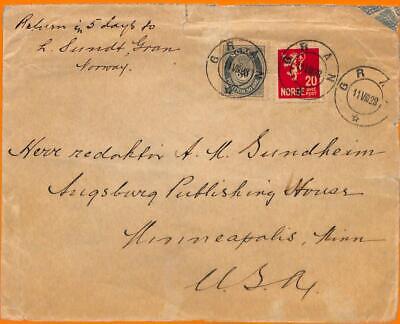 Return in 5 days to
L. Sundt Gran
Norway.
GRAN
GRAN
NORGE
20
GRAN
11 VIII 28
Herr redaktör A. M. Sundheim
Augsburg Publishing House
Minneapolis, Minn
U.S.A.